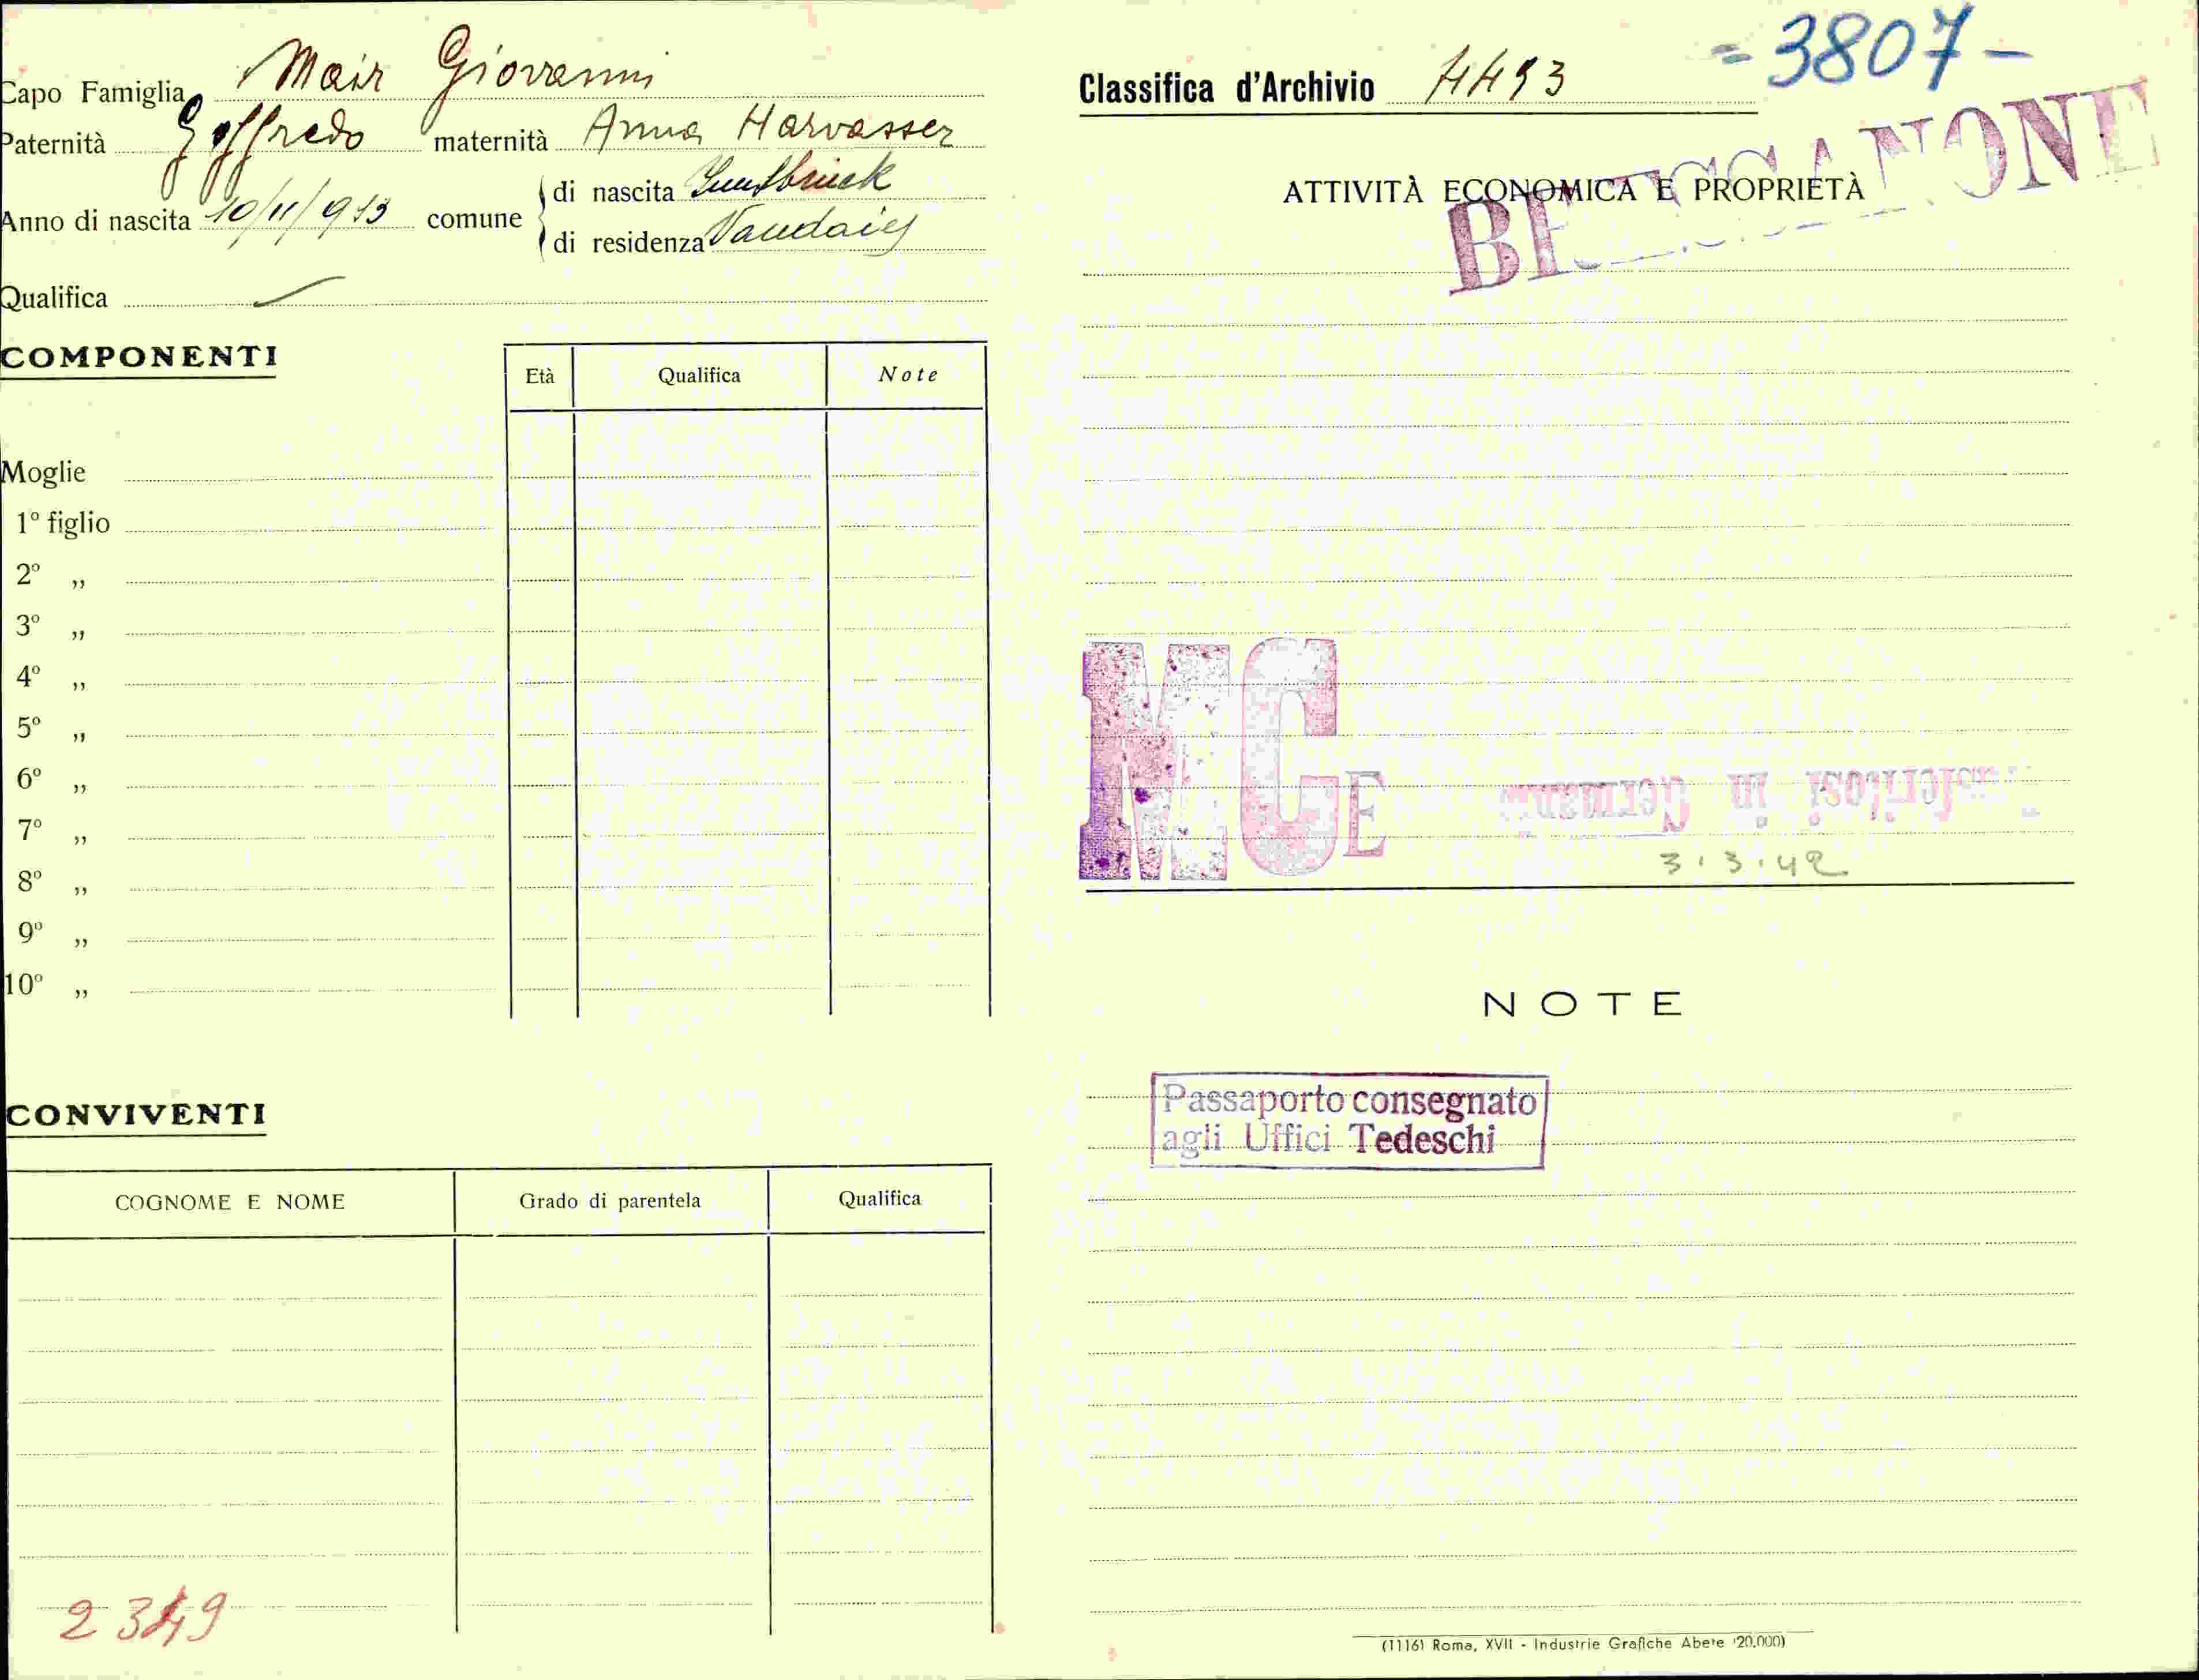 Capo Famiglia Mair Giovanni
Paternità Goffredo maternità Anna Harvasser
Anno di nascita 10/11/913 comune di nascita Innsbruck
di residenza Vandoies
Qualifica
COMPONENTI
Età Qualifica Note
Moglie
1º figlio
2º „
3º „
4º „
5º „
6º „
7º „
8º „
9º „
10º „
CONVIVENTI
COGNOME E NOME Grado di parentela Qualifica
2349
Classifica d'Archivio 4493
= 3807 -
BRESSANONE
ATTIVITÀ ECONOMICA E PROPRIETÀ
MCE
in German
3.3.42
NOTE
Passaporto consegnato
agli Uffici Tedeschi
(1116) Roma, XVII - Industrie Grafiche Abete (20.000)